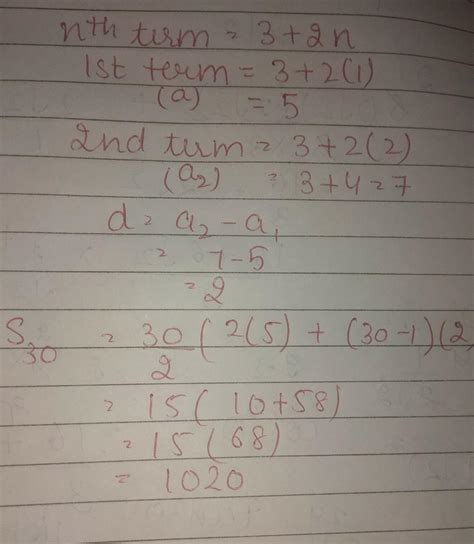 nth term = 3+2n
1st term = 3+2(1)
(a) = 5
2nd term = 3+2(2)
(a2) = 3+4=7
d = a2-a1
= 7-5
= 2
S30 = 30/2 ( 2(5) + (30-1)(2
= 15( 10+58)
= 15(68)
= 1020